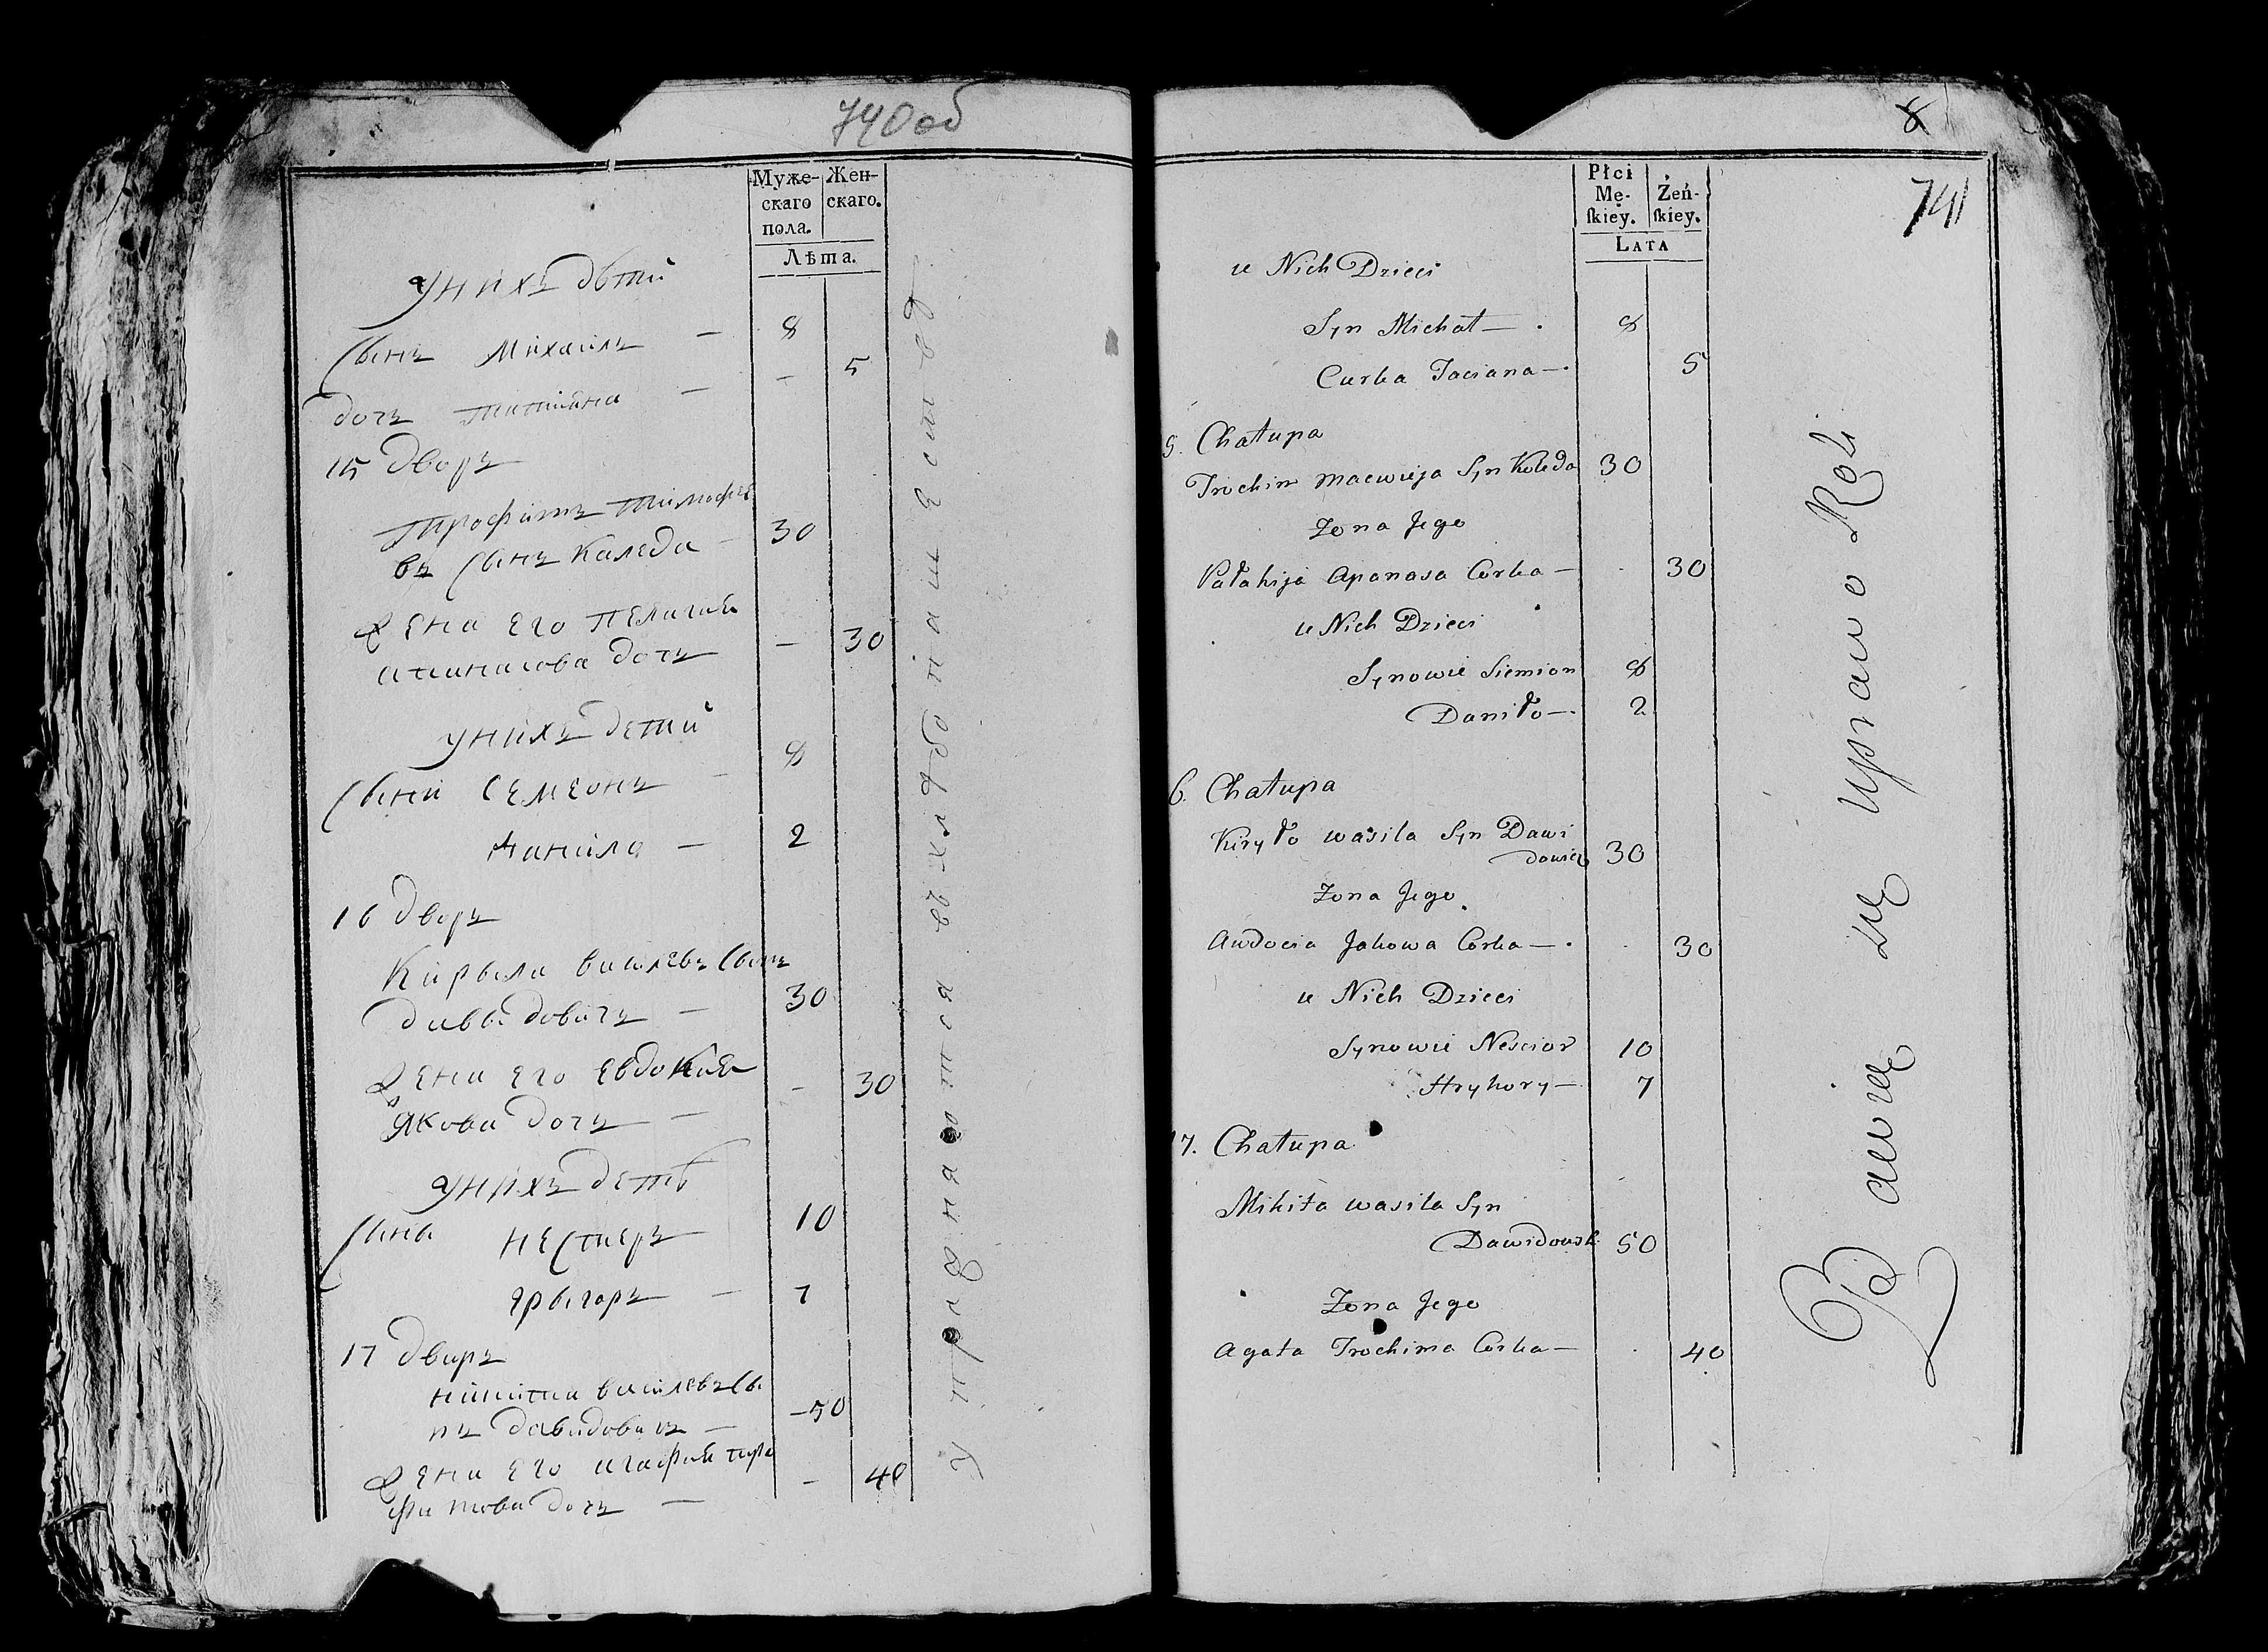 740об
Муже-
скаго
пола.
Жен-
скаго.
Лѣта.
унихъ дѣтй
Сынъ Михаилъ — 8
дочъ татиана — — 5
15 дворъ
трофимъ тимофее
въ Сынъ Каледа — 30
Жена Его пелагия
апанасова дочъ — 30
унихъ детй
Сыни Семионъ — 8
Данило — 2
16 дворъ
Кирыла василевъ Сынъ
давыдовичъ — 30
Жена Его Евдокия
Якова дочъ — — 30
унихъ дети
Сыны Нестперъ 10
Грыгоръ — 7
17 дворъ
никита василевъ Сы
нъ давидовичъ — 50
Жена Его агафия тро
фимова дочъ — — 40
упражняются въ хлѣбопашествѣ
8
741
Płci
Mę-
ſkiey.
Żeń-
ſkiey.
LATA
u Nich Dzieci
Syn Michał — 8
Curka Taciana — 5
5. Chałupa
Trochim Maewieja Syn Koleda 30
Żona Jego
Pałahija Apanasa Corka — 30
u Nich Dzieci
Synowie Siemion 8
Daniło — 2
6. Chałupa
Kiryło wasila Syn Dawi
dowicz 30
Żona Jego
Awdocia Jakowa Corka — 30
u Nich Dzieci
Synowie Nescior 10
Hryhory — 7
17. Chałupa
Mikita wasila Syn
Dawidowicz 50
Żona Jego
Agata Trochima Corka — 40
Bawią się uprawo Roli